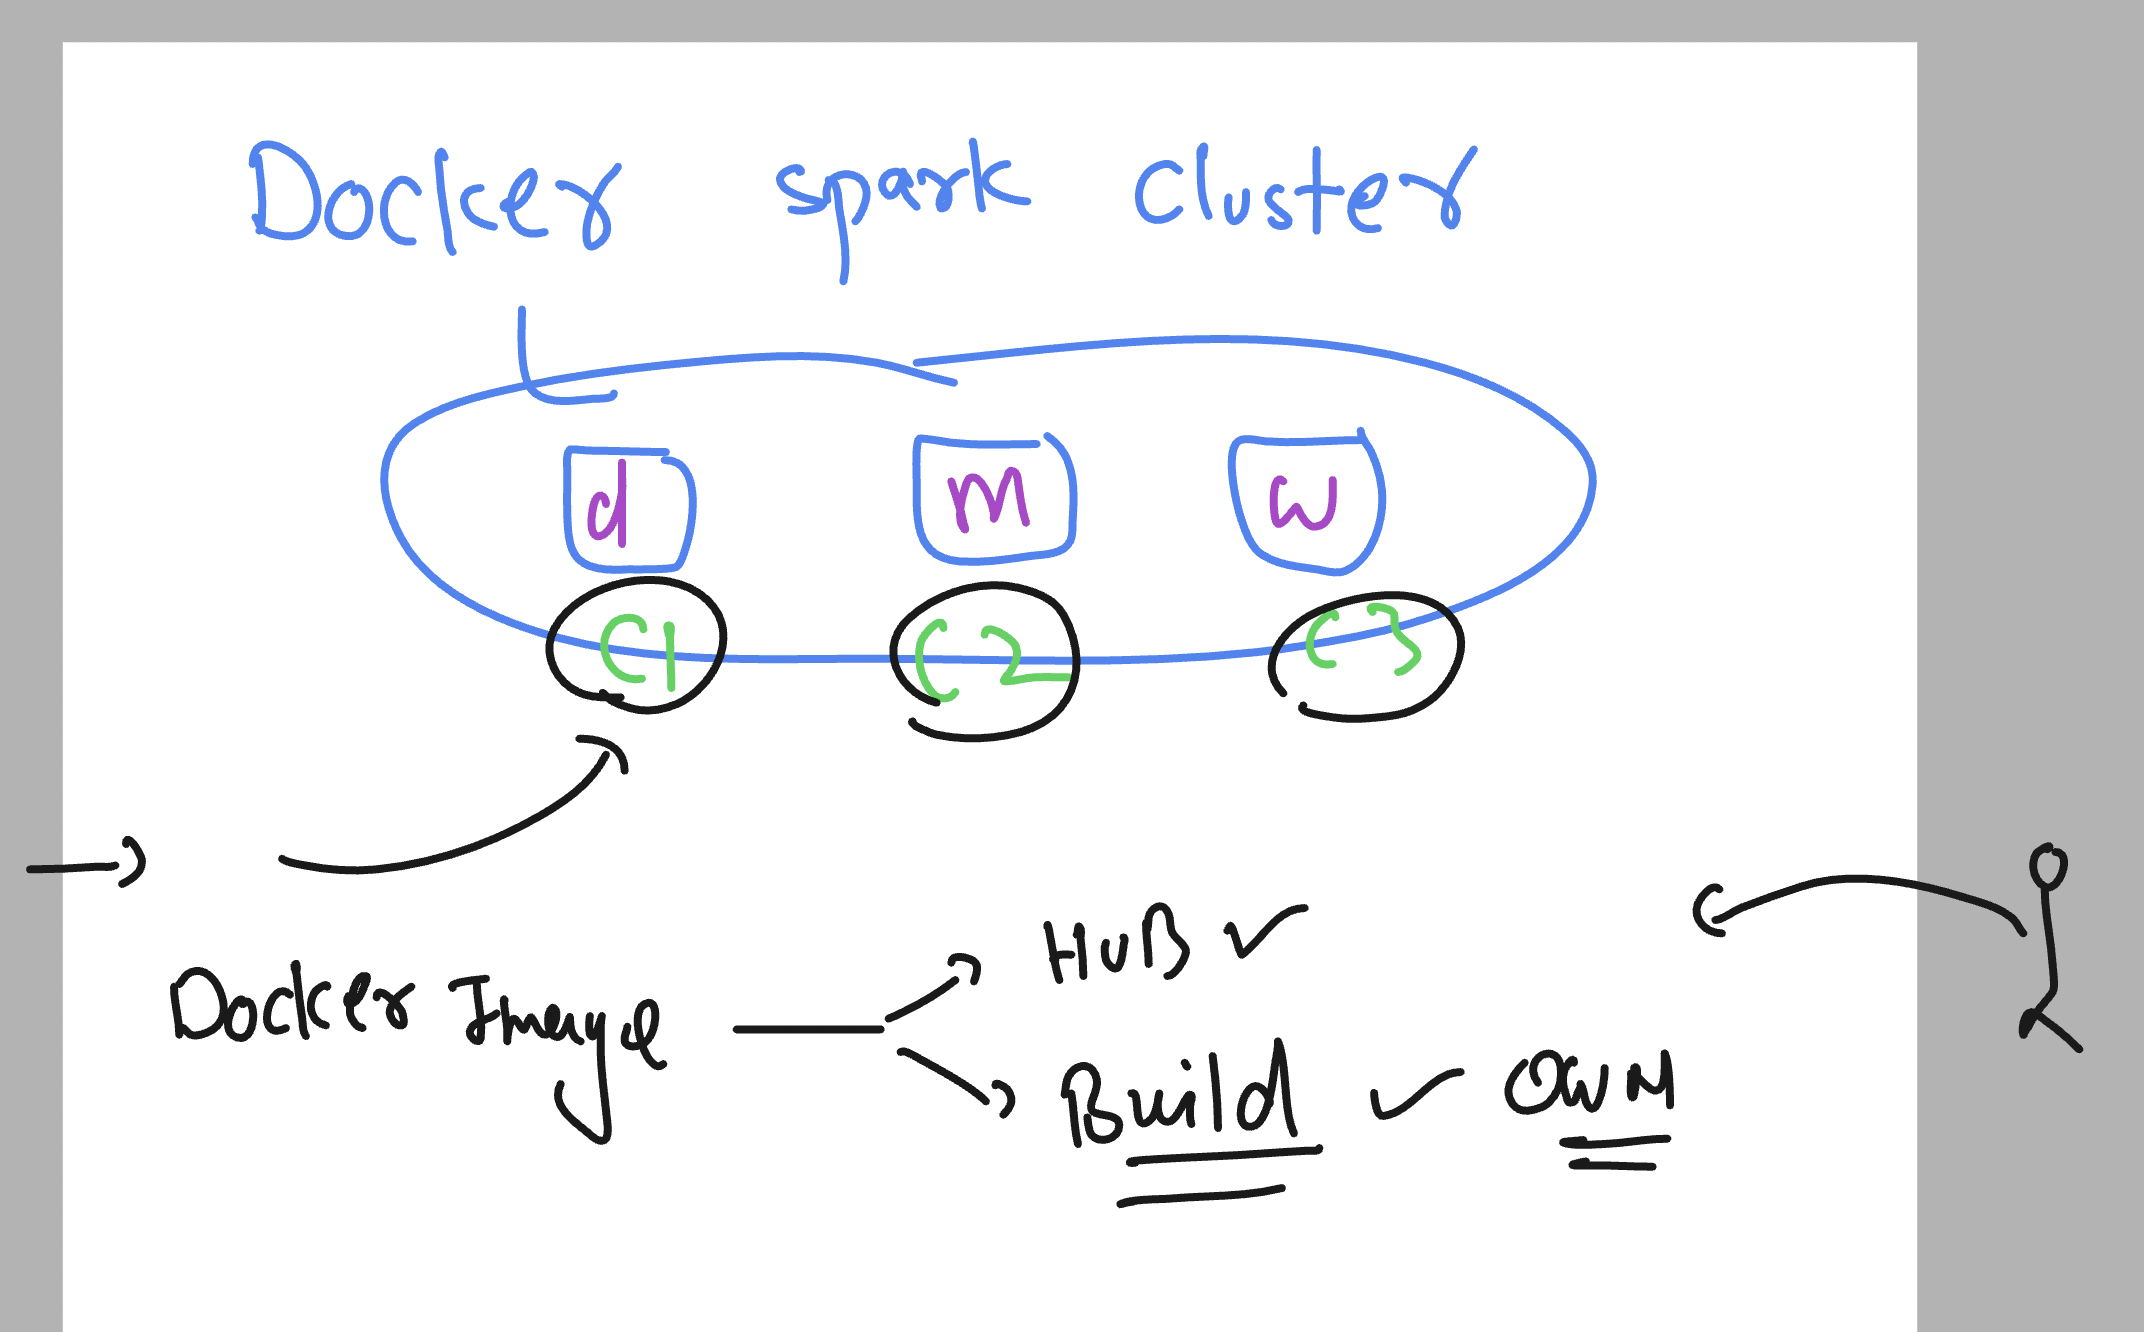 Docker spark cluster
d m w
C1 C2 C3
HUB
Docker Image
Build OWN